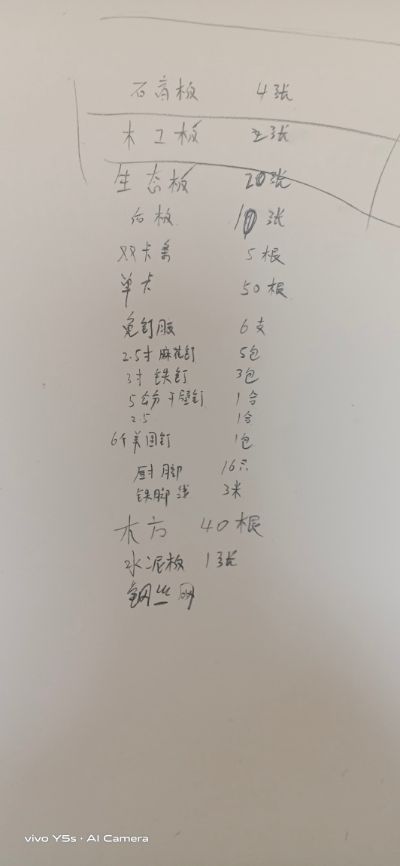 石膏板 4张
木工板 2张
生态板 20张
后板 10张
双卡条 5根
单卡 50根
免钉胶 6支
2.5寸麻花钉 5包
3寸铁钉 3包
5公分干壁钉 1合
2.5 1合
6个美固钉 1包
厨脚 16只
铁脚线 3米
木方 40根
水泥板 1张
钢丝网
vivo Y5s · AI Camera